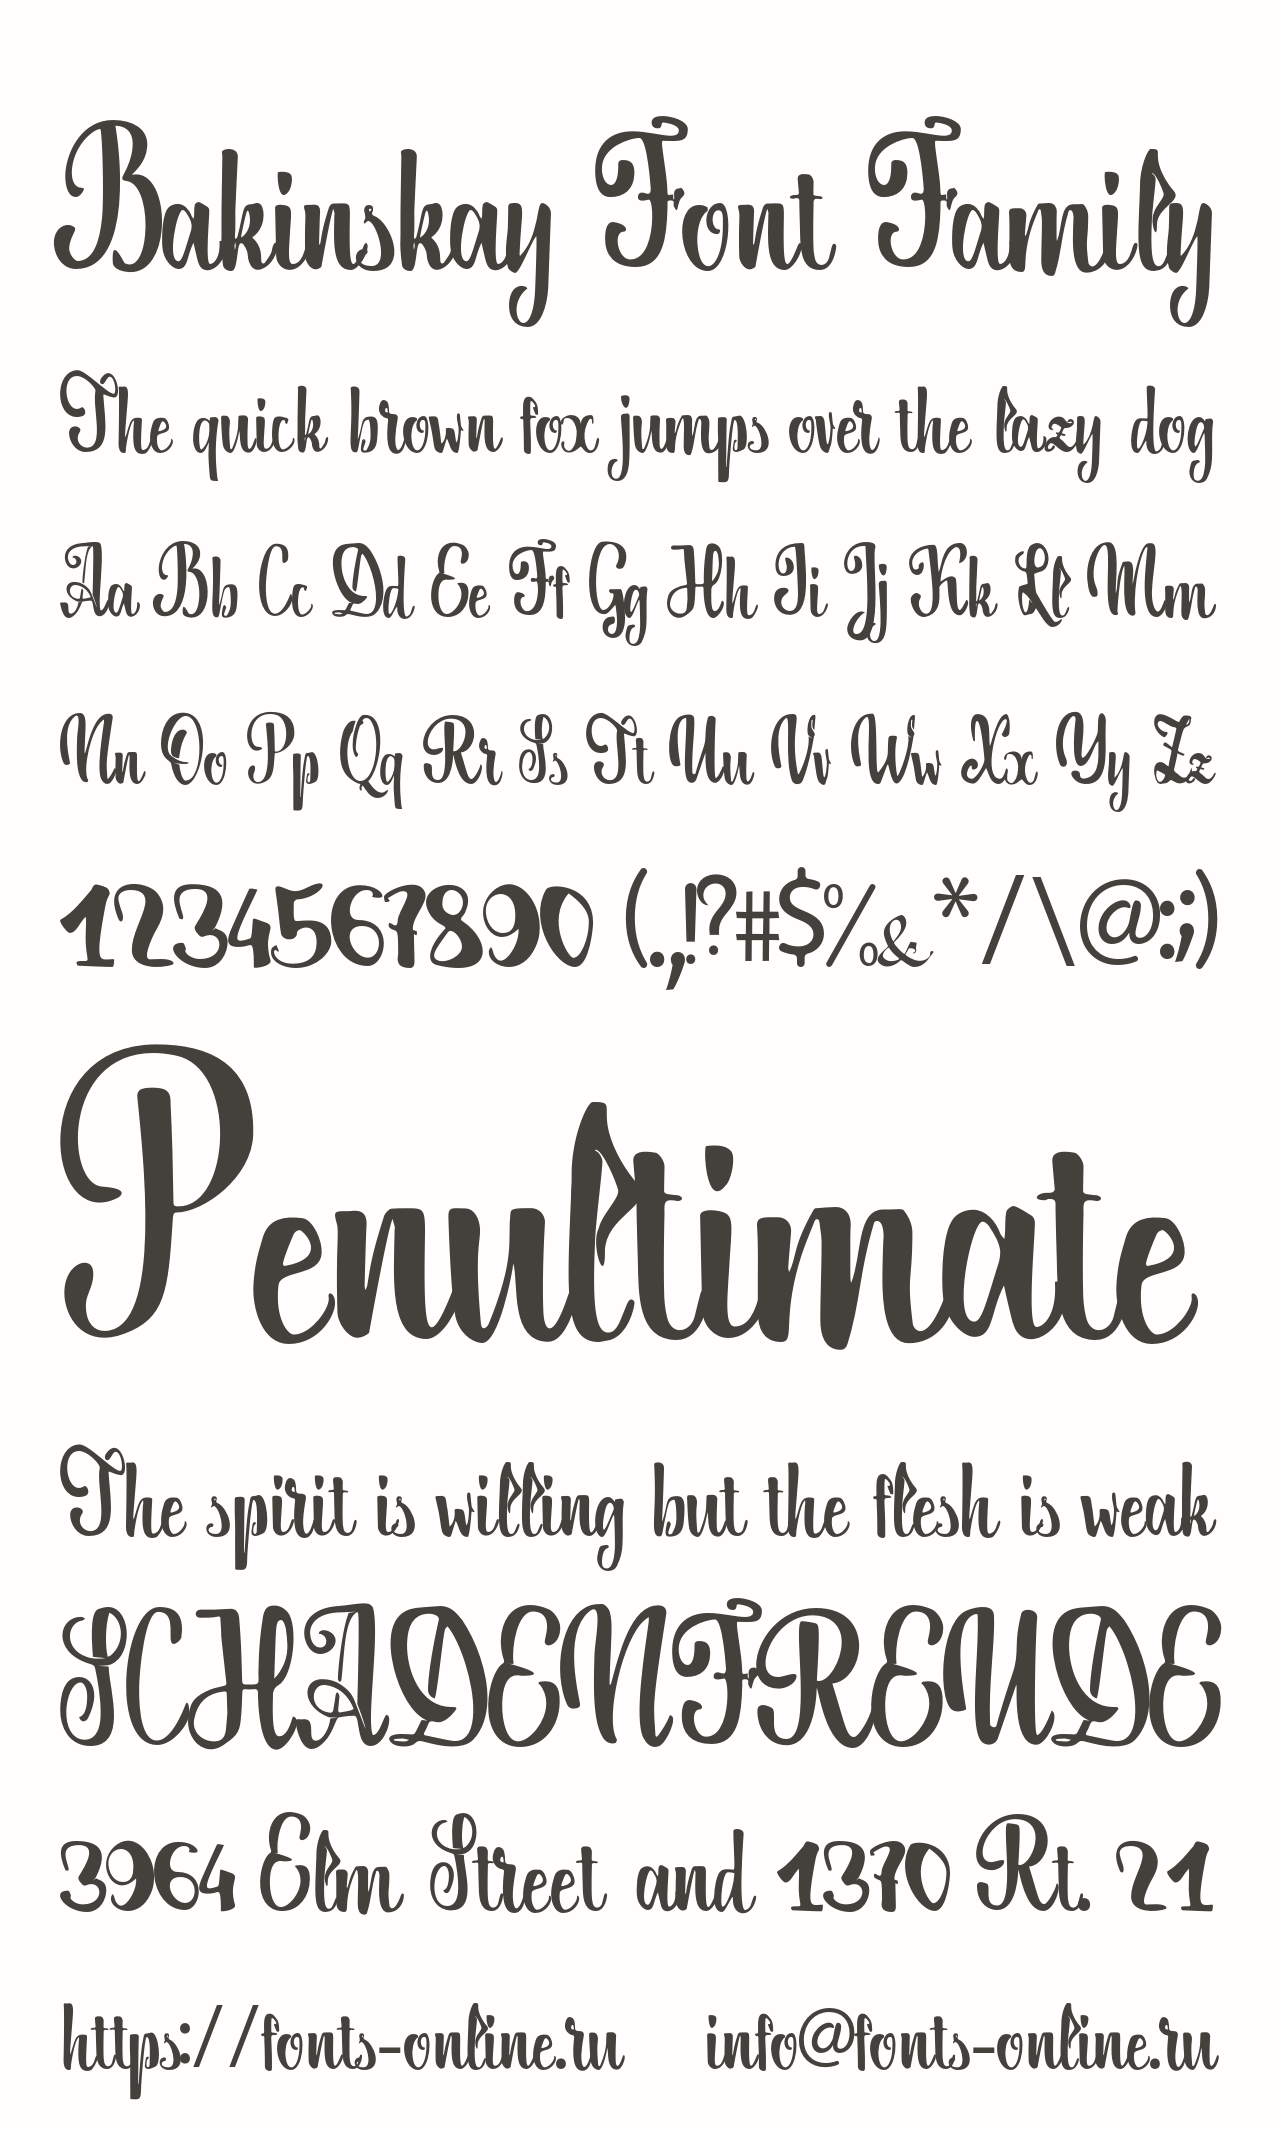 Bakinskay Font Family
The quick brown fox jumps over the lazy dog
Aa Bb Cc Dd Ee Ff Gg Hh Ii Jj Kk Ll Mm
Nn Oo Pp Qq Rr Ss Tt Uu Vv Ww Xx Yy Zz
1234567890 (.,!?#$%&*/\@:;)
Penultimate
The spirit is willing but the flesh is weak
SCHADENFREUDE
3964 Elm Street and 1370 Rt. 21
https://fonts-online.ru info@fonts-online.ru